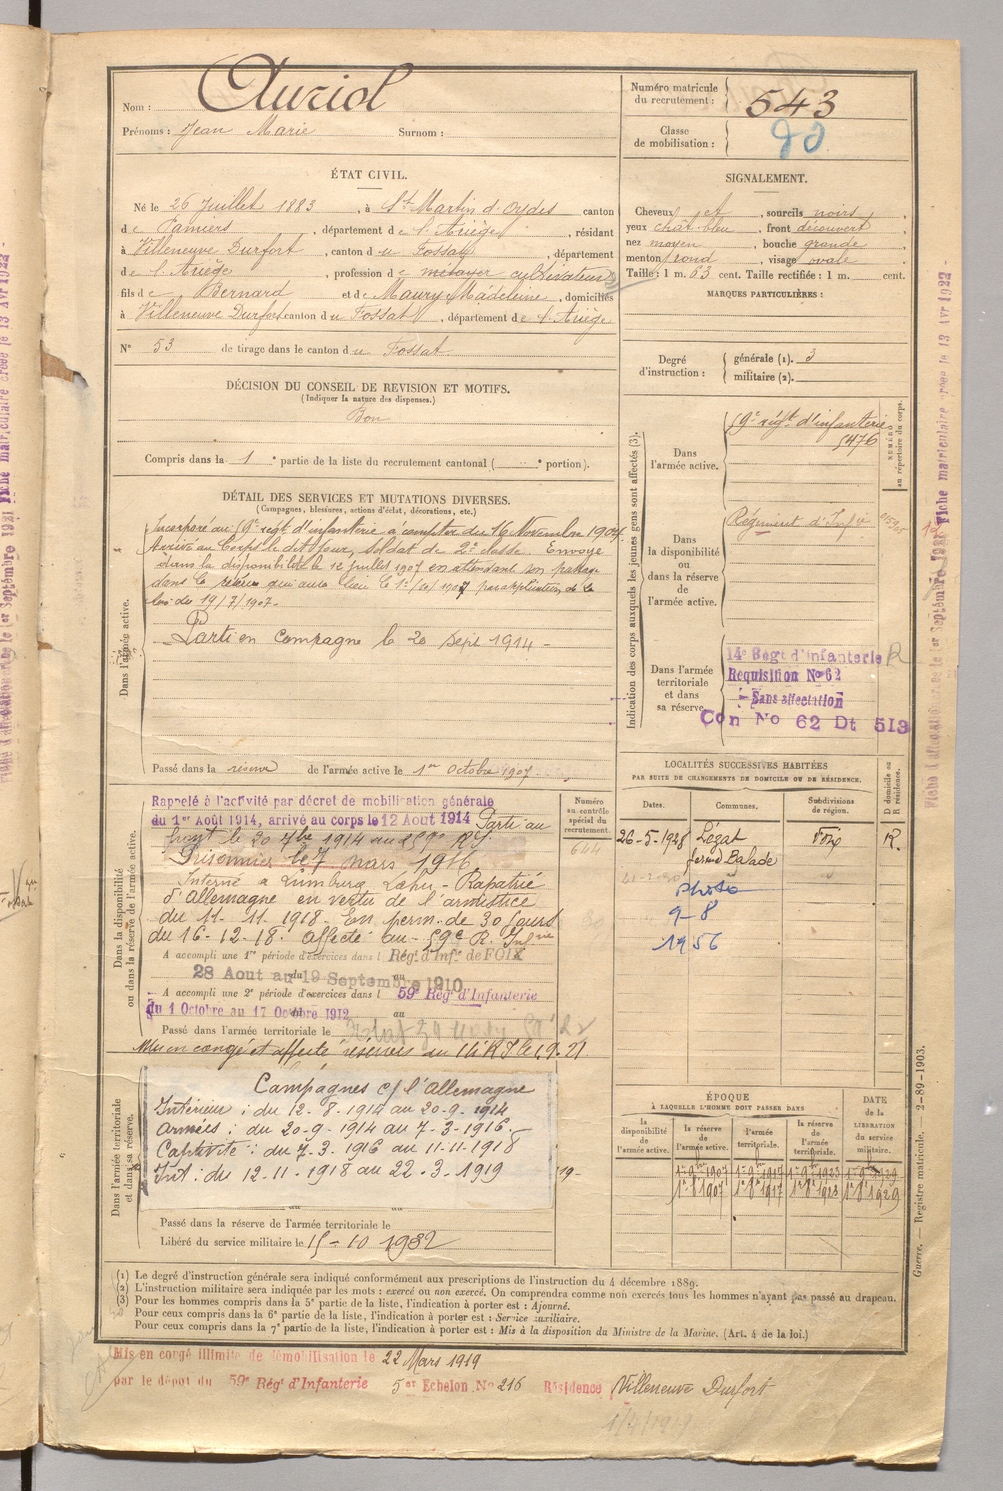 Nom : Auriol
Prénoms : Jean Marie Surnom :
Numéro matricule du recrutement : 543
Classe de mobilisation :
ÉTAT CIVIL.
Né le 26 Juillet 1883, à St Martin d'Oydes canton
de Pamiers, département de l'Ariège, résidant
à Villeneuve Durfort, canton du Fossat, département
de l'Ariège, profession de métayer cultivateur
fils de Bernard et de Maury Madeleine, domiciliés
à Villeneuve Durfort canton du Fossat, département de l'Ariège
N° 53 de tirage dans le canton du Fossat.
DÉCISION DU CONSEIL DE REVISION ET MOTIFS.
(Indiquer la nature des dispenses.)
Bon
Compris dans la 1e partie de la liste du recrutement cantonal ( e portion).
SIGNALEMENT.
Cheveux et, sourcils noirs,
yeux chât. bleu, front découvert,
nez moyen, bouche grande
menton rond, visage ovale
Taille : 1 m. 63 cent. Taille rectifiée : 1 m. cent.
MARQUES PARTICULIÈRES :
Degré d'instruction : générale (1). 3
militaire (2).
DÉTAIL DES SERVICES ET MUTATIONS DIVERSES.
(Campagnes, blessures, actions d'éclat, décorations, etc.)
Dans l'armée active.
Incorporé au régt d'infanterie à compter du 16 Novembre 1904.
Arrivé au Corps le dit jour, soldat de 2e classe. Envoyé
dans la disponibilité le 12 juillet 1907 en attendant son passage
dans la réserve qui aura lieu le 1er/10/1907 par application de la
loi du 19/7/1907.
Parti en Campagne le 20 Sept 1914 -
Passé dans la réserve de l'armée active le 1er Octobre 1907
Indication des corps auxquels les jeunes gens sont affectés (3).
Dans l'armée active.
régt d'infanterie
5476
NUMÉRO au répertoire du corps.
Dans la disponibilité ou dans la réserve de l'armée active.
Régiment d'Infie
Dans l'armée territoriale et dans sa réserve.
14e Regt d'Infanterie R
Requisition No 62
Sans affectation
Con No 62 Dt 513
Dans la disponibilité ou dans la réserve de l'armée active.
Rappelé à l'activité par décret de mobilisation générale
du 1er Août 1914, arrivé au corps le 12 Aout 1914 Parti au
front le 20 7bre 1914 au 59e RI.
Prisonnier le 7 mars 1916
Interné à Limburg Lahn - Rapatrié
d'Allemagne en vertu de l'armistice
du 11- 11. 1918. En perm. de 30 jours
du 16-12-18. Affecté au 59e R. Infrie
A accompli une 1re période d'exercices dans l Rég. d'Inf. de FOIX
du 28 Aout au 19 Septembre 1910
A accompli une 2e période d'exercices dans l 59e Reg. d'Infanterie
du 1 Octobre au 17 Octobre 1912
Passé dans l'armée territoriale le
Mis en congé et affecté réserves au 14 RI le 1.9.21
Numéro au contrôle spécial du recrutement.
644
LOCALITÉS SUCCESSIVES HABITÉES
PAR SUITE DE CHANGEMENTS DE DOMICILE OU DE RÉSIDENCE.
Dates. Communes. Subdivisions de région. D domicile ou R résidence.
26-5-1928 Lézat Foix R.
ferme Balade
Photo
9-8
1956
Dans l'armée territoriale et dans sa réserve.
Campagnes c/ l'Allemagne
Intérieur : du 12-8-1914 au 20-9-1914
Armées : du 20-9-1914 au 7-3-1916.
Captivité : du 7-3-1916 au 11-11-1918
Int : du 12-11-1918 au 22-3-1919
19-
Passé dans la réserve de l'armée territoriale le
Libéré du service militaire le 15-10 1932
ÉPOQUE
À LAQUELLE L'HOMME DOIT PASSER DANS
DATE de la LIBÉRATION du service militaire.
la disponibilité de l'armée active. la réserve de l'armée active. l'armée territoriale. la réserve de l'armée territoriale.
(1) Le degré d'instruction générale sera indiqué conformément aux prescriptions de l'instruction du 4 décembre 1889.
(2) L'instruction militaire sera indiquée par les mots : exercé ou non exercé. On comprendra comme non exercés tous les hommes n'ayant pas passé au drapeau.
(3) Pour les hommes compris dans la 5e partie de la liste, l'indication à porter est : Ajourné.
Pour ceux compris dans la 6e partie de la liste, l'indication à porter est : Service auxiliaire.
Pour ceux compris dans la 7e partie de la liste, l'indication à porter est : Mis à la disposition du Ministre de la Marine. (Art. 4 de la loi.)
Mis en congé illimité de démobilisation le 22 Mars 1919
par le dépôt du 59e Rég. d'Infanterie 5er Echelon No 216 Résidence Villeneuve Durfort
Guerre. — Registre matricule. — 2-89-1903.